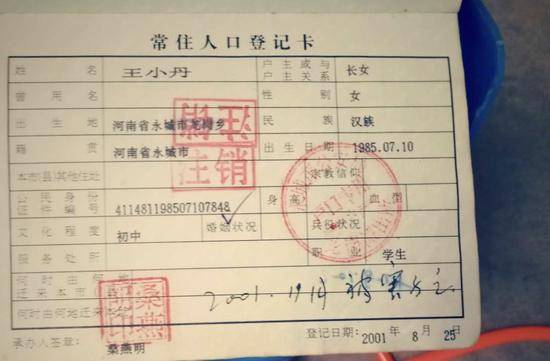 常住人口登记卡
姓名 王小丹 户主或与户主关系 长女
曾用名 性别 女
出生地 河南省永城市 乡 民族 汉族
籍贯 河南省永城市 出生日期 1985.07.10
本市(县)其他住址 宗教信仰
公民身份证件编号 411481198507107848 身高 血型
文化程度 初中 婚姻状况 兵役状况
服务处所 职业 学生
何时由何地迁来本市
何时由何地迁来本址
2001.
承办人签章: 桑燕明 登记日期: 2001 年 8 月 25 日
注销
桑燕明印